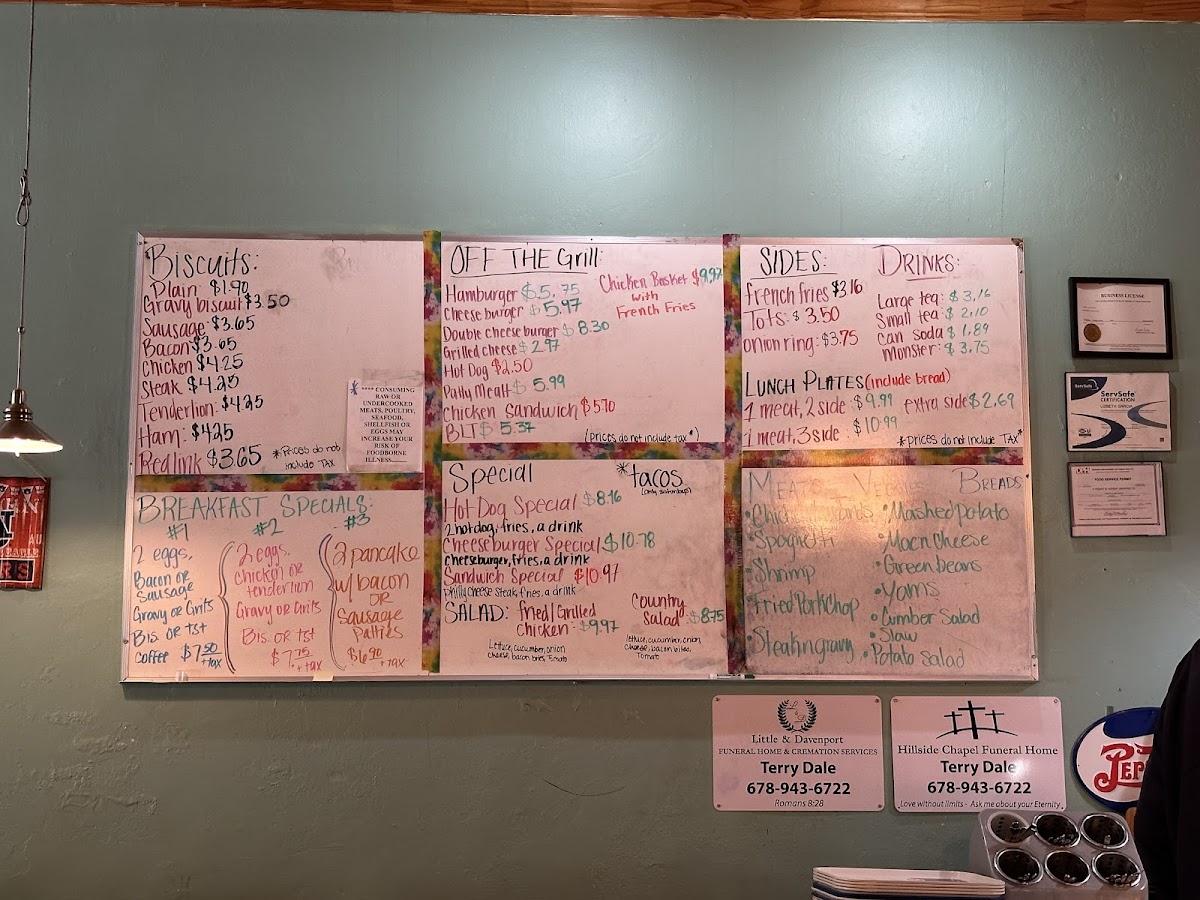 Biscuits:
Plain $1.90
Gravy biscuit $3.50
Sausage $3.65
Bacon $3.65
Chicken $4.25
Steak $4.25
Tenderlion: $4.25
Ham: $4.25
Redlink $3.65
*Prices do not
include TAX
**** CONSUMING
RAW OR
UNDERCOOKED
MEATS, POULTRY,
SEAFOOD,
SHELLFISH OR
EGGS MAY
INCREASE YOUR
RISK OF
FOODBORNE
ILLNESS....
BREAKFAST SPECIALS:
#1
2 eggs,
Bacon or
Sausage
Gravy or Grits
Bis. or tst
coffee $7.50
+tax
#2
2 eggs,
Chicken or
tenderlion
Gravy or Grits
Bis. or tst
$7.75
+tax
#3
2 pancake
w/ bacon
OR
Sausage
Patties
$6.90
+tax
OFF THE Grill:
Hamburger $5.75
Cheeseburger $5.97
Double cheeseburger $8.30
Grilled cheese $2.97
Hot Dog $2.50
Patty Meatt $5.99
Chicken Sandwich $5.70
BLT $5.37
Chicken Basket $9.97
with
French Fries
(prices do not include tax*)
Special
*tacos
(only saturdays)
Hot Dog Special $8.16
2 hotdog, fries, a drink
Cheeseburger Special $10.78
cheeseburger, fries, a drink
Sandwich Special $10.97
philly cheese steak, fries, a drink
SALAD: fried/Grilled
Chicken $9.97
Lettuce, cucumber, onion
cheese, bacon bites, Tomato
Country
Salad $8.75
lettuce, cucumber, onion,
cheese, bacon bites,
Tomato
SIDES:
french fries $3.16
Tots: $3.50
onion ring: $3.75
DRINKS:
Large tea: $3.16
Small tea: $2.10
can soda $1.89
Monster: $3.75
LUNCH PLATES (include bread)
1 meat, 2 side $9.99 extra side $2.69
1 meat, 3 side $10.99
*prices do not include TAX*
MEATS Veggies BREADS:
•Spaghetti
•Shrimp
•Fried Pork Chop
•Steakngravy
•Mashed potato
•Mac n Cheese
•Green beans
•Yams
•Cumber Salad
•Slaw
•Potato salad
BUSINESS LICENSE
ServSafe
ServSafe
CERTIFICATION
FOOD SERVICE PERMIT
Little & Davenport
FUNERAL HOME & CREMATION SERVICES
Terry Dale
678-943-6722
Romans 8:28
Hillside Chapel Funeral Home
Terry Dale
678-943-6722
Love without limits - Ask me about your Eternity
PEP